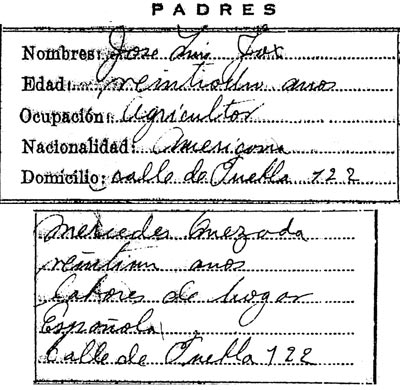 PADRES
Nombres: Jose Luis Fox
Edad: veintioun anos
Ocupación: Agricultor
Nacionalidad: Americana
Domicilio: calle de Puebla 122
Mercedes Quezada
veintiun anos
labores de hogar
Española
Calle de Puebla 122